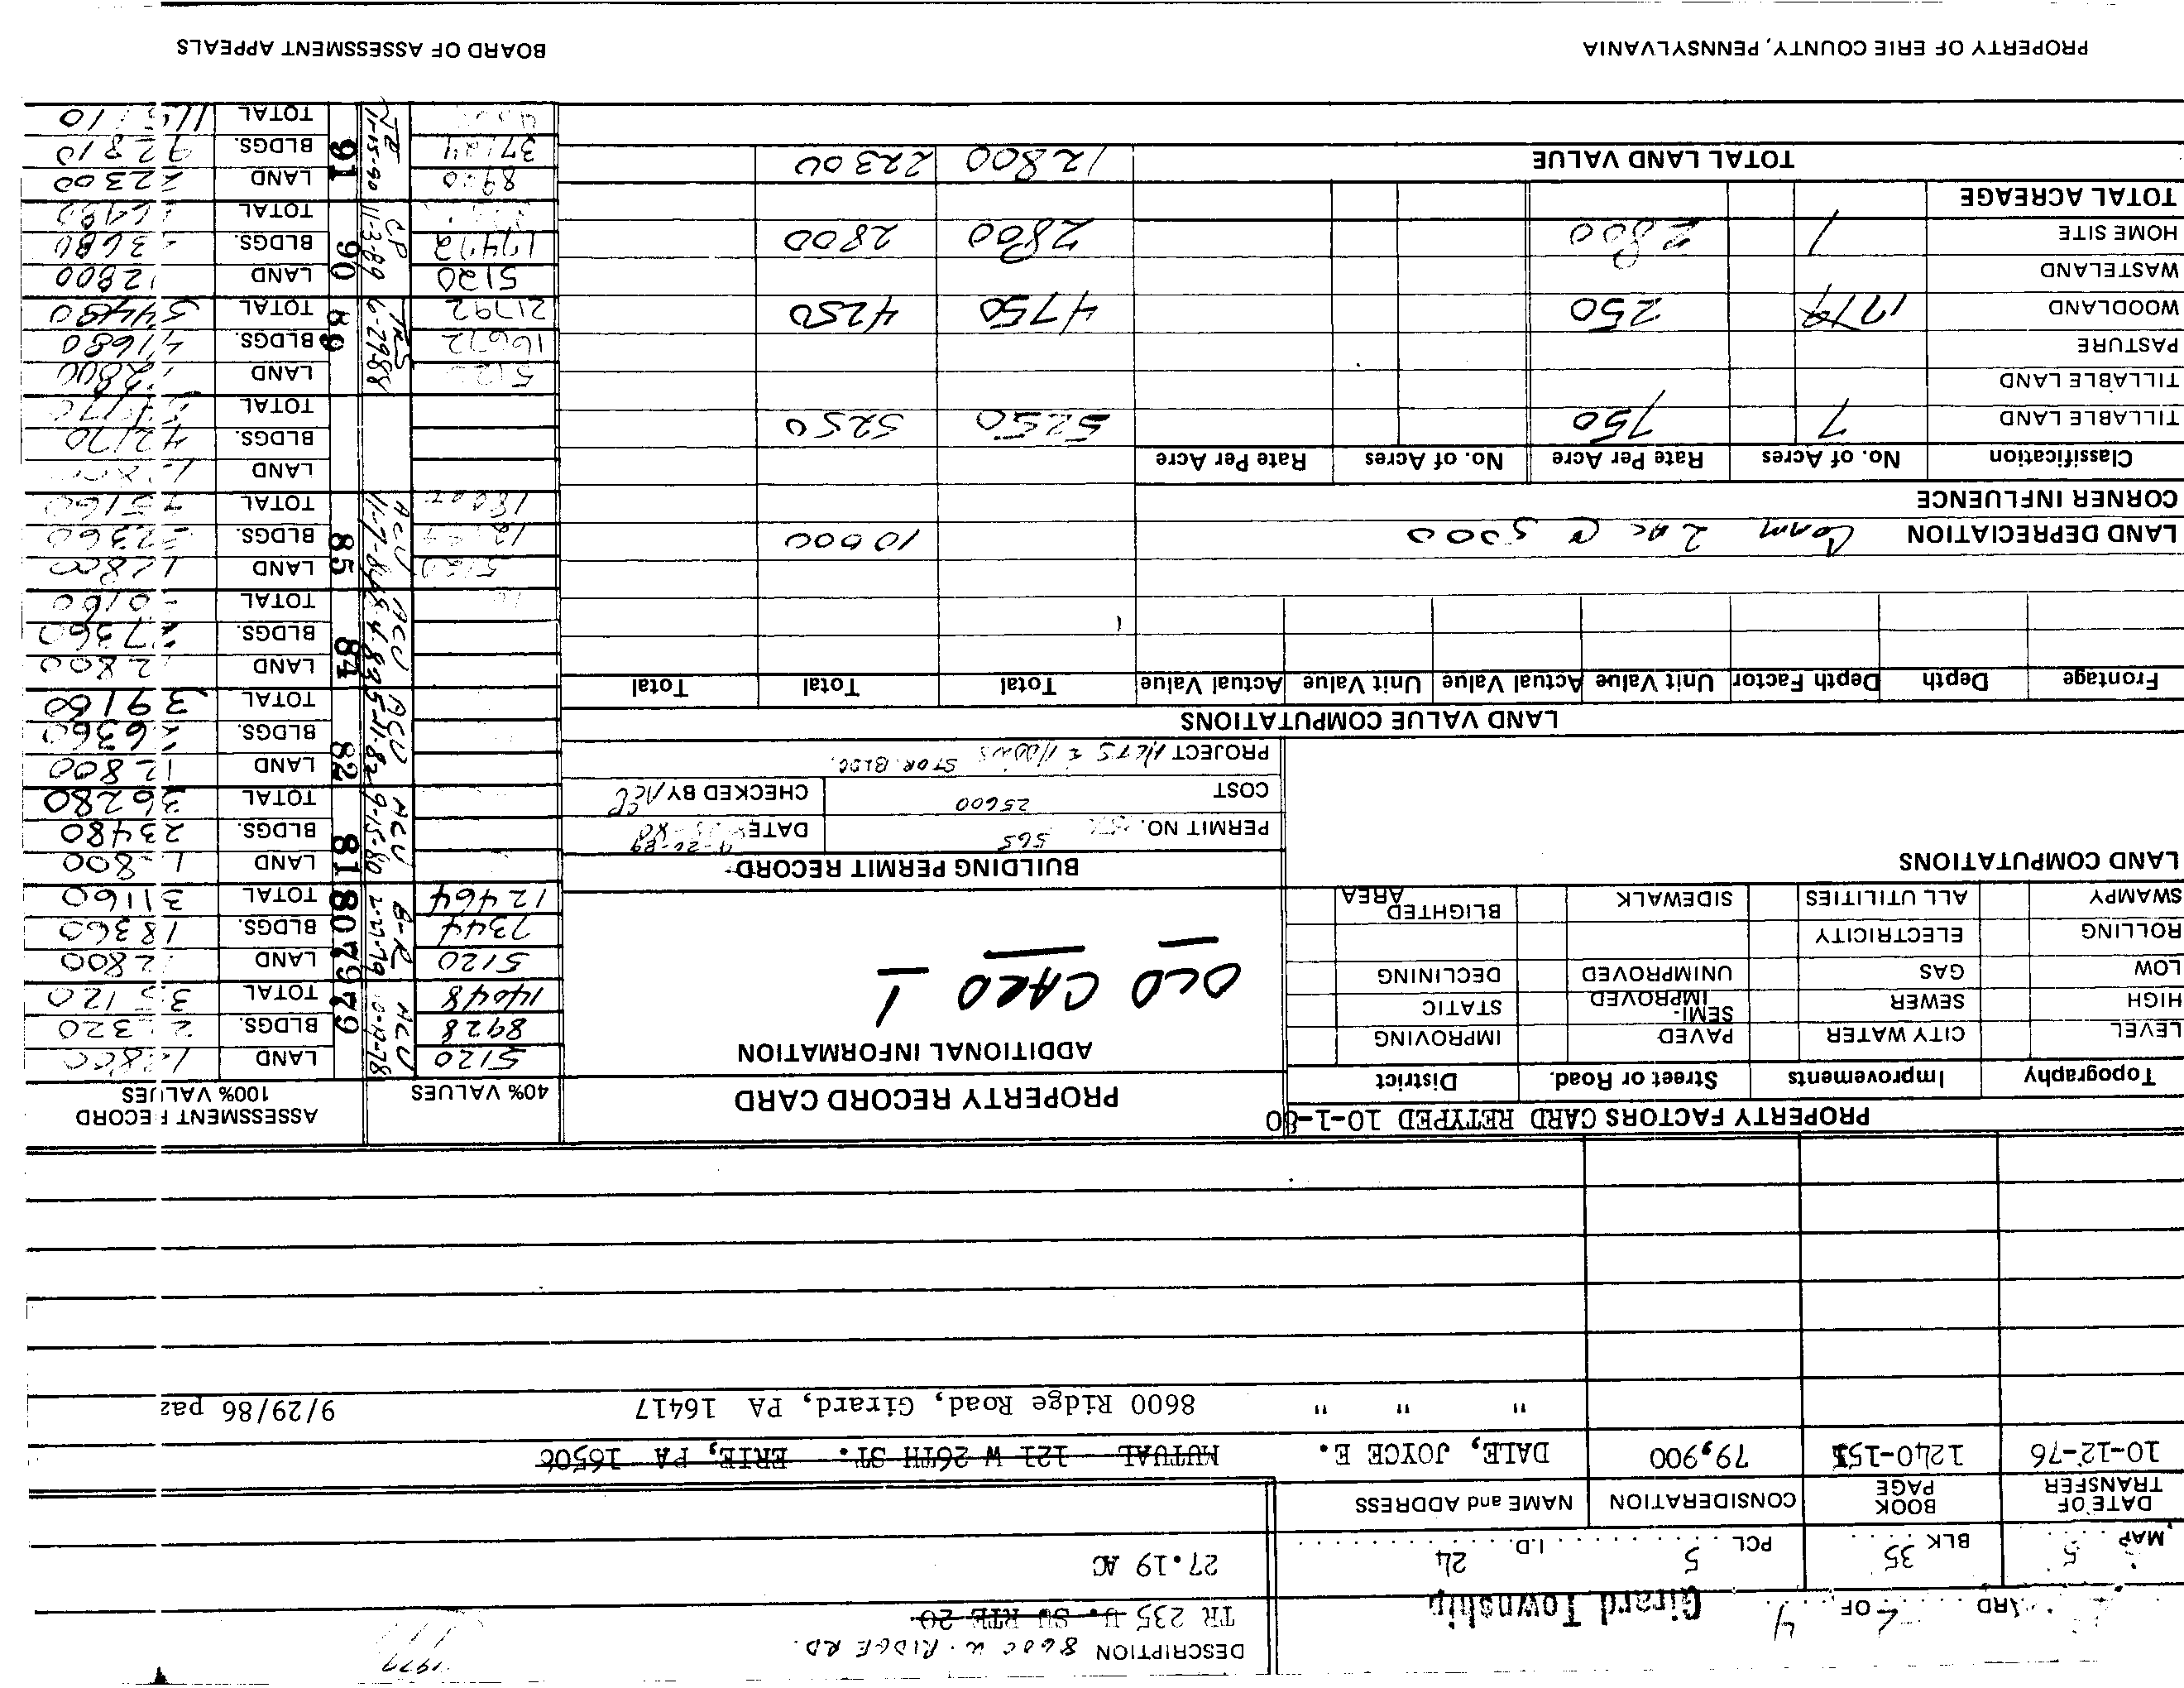 DESCRIPTION 8600 W. RIDGE RD.
1977
CARD 2 OF 4
Girard Township
TR 235 U. S. RTE 20
MAP 5 BLK 35 PCL 5 I.D. 24
27.19 AC
DATE OF TRANSFER BOOK PAGE CONSIDERATION NAME and ADDRESS
10-12-76 1240-151 79,900 DALE, JOYCE E. MUTUAL 121 W 26TH ST. - ERIE, PA 16506
" " " 8600 Ridge Road, Girard, PA 16417 9/29/86 paz
PROPERTY FACTORS CARD RETYPED 10-1-80
Topography Improvements Street or Road. District
LEVEL CITY WATER PAVED IMPROVING
HIGH SEWER SEMI-IMPROVED STATIC
LOW GAS UNIMPROVED DECLINING
ROLLING ELECTRICITY
SWAMPY ALL UTILITIES SIDEWALK BLIGHTED AREA
LAND COMPUTATIONS
PROPERTY RECORD CARD
ADDITIONAL INFORMATION
OLD CARD - 1
BUILDING PERMIT RECORD
PERMIT NO. 565 DATE 9-20-89
COST 25600 CHECKED BY
PROJECT STOR. BLDG.
LAND VALUE COMPUTATIONS
Frontage Depth Depth Factor Unit Value Actual Value Unit Value Actual Value Total Total Total
LAND DEPRECIATION Comm 2 ac @ 5000 10000
CORNER INFLUENCE
Classification No. of Acres Rate Per Acre No. of Acres Rate Per Acre
TILLABLE LAND 7 750 5250 5250
TILLABLE LAND
PASTURE
WOODLAND 17 19 250 4750 4250
WASTELAND
HOME SITE 1 2800 2800 2800
TOTAL ACREAGE
TOTAL LAND VALUE 12800 22300
40% VALUES
ASSESSMENT RECORD
100% VALUES
5120 10-12-78 79 LAND
8928 BLDGS.
14048 TOTAL 35120
5120 B-R 2-27-79 79 80 LAND 12800
7344 BLDGS. 18360
12464 TOTAL 31160
9-15-80 81 LAND
BLDGS. 23480
TOTAL 36280
5-21-82 82 LAND 12800
BLDGS. 26360
TOTAL 39160
84 LAND 12800
BLDGS. 27360
TOTAL
85 LAND 12800
BLDGS. 32360
TOTAL 45160
LAND
BLDGS. 42170
TOTAL
TRS 6-29-88 89 LAND 12800
16672 BLDGS. 41680
21792 TOTAL 54480
5120 CP 11-3-89 90 LAND 12800
17472 BLDGS. 43680
TOTAL
8920 11-15-90 91 LAND 22300
37124 BLDGS. 92810
TOTAL
PROPERTY OF ERIE COUNTY, PENNSYLVANIA
BOARD OF ASSESSMENT APPEALS